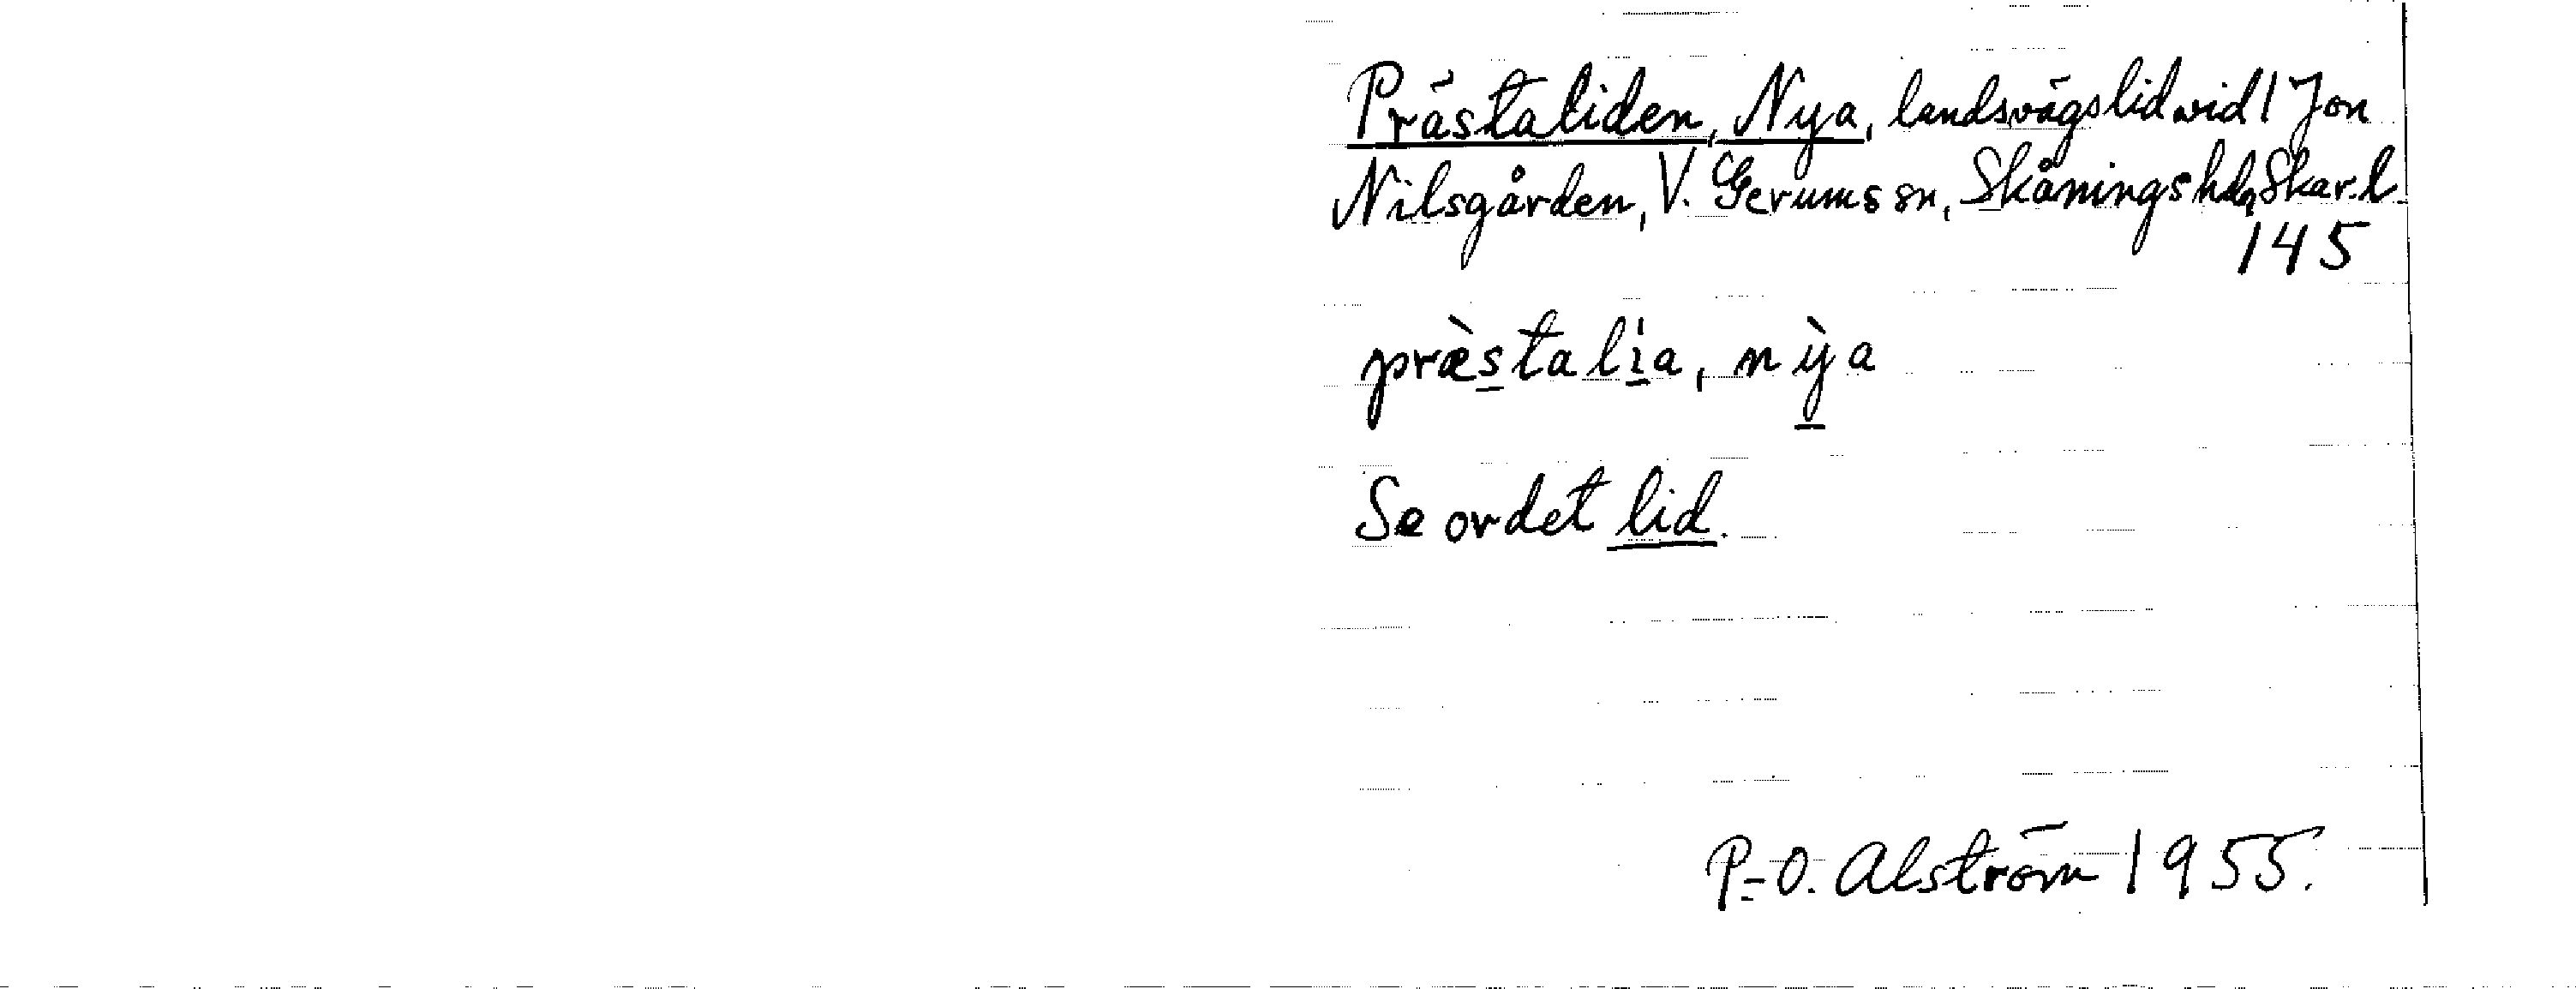 Prästaliden, Nya, landsvägslid vid 1 Jon
Nilsgården, V. Gerums sn, Skånings hd, Skar. l
145
præ̀stalı̇a, nỳa
Se ordet lid.
P-O. Alström 1955.